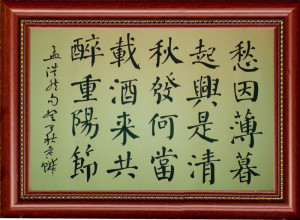 愁因薄暮
起興是清
秋發何當
載酒来共
醉重陽節
孟浩然句